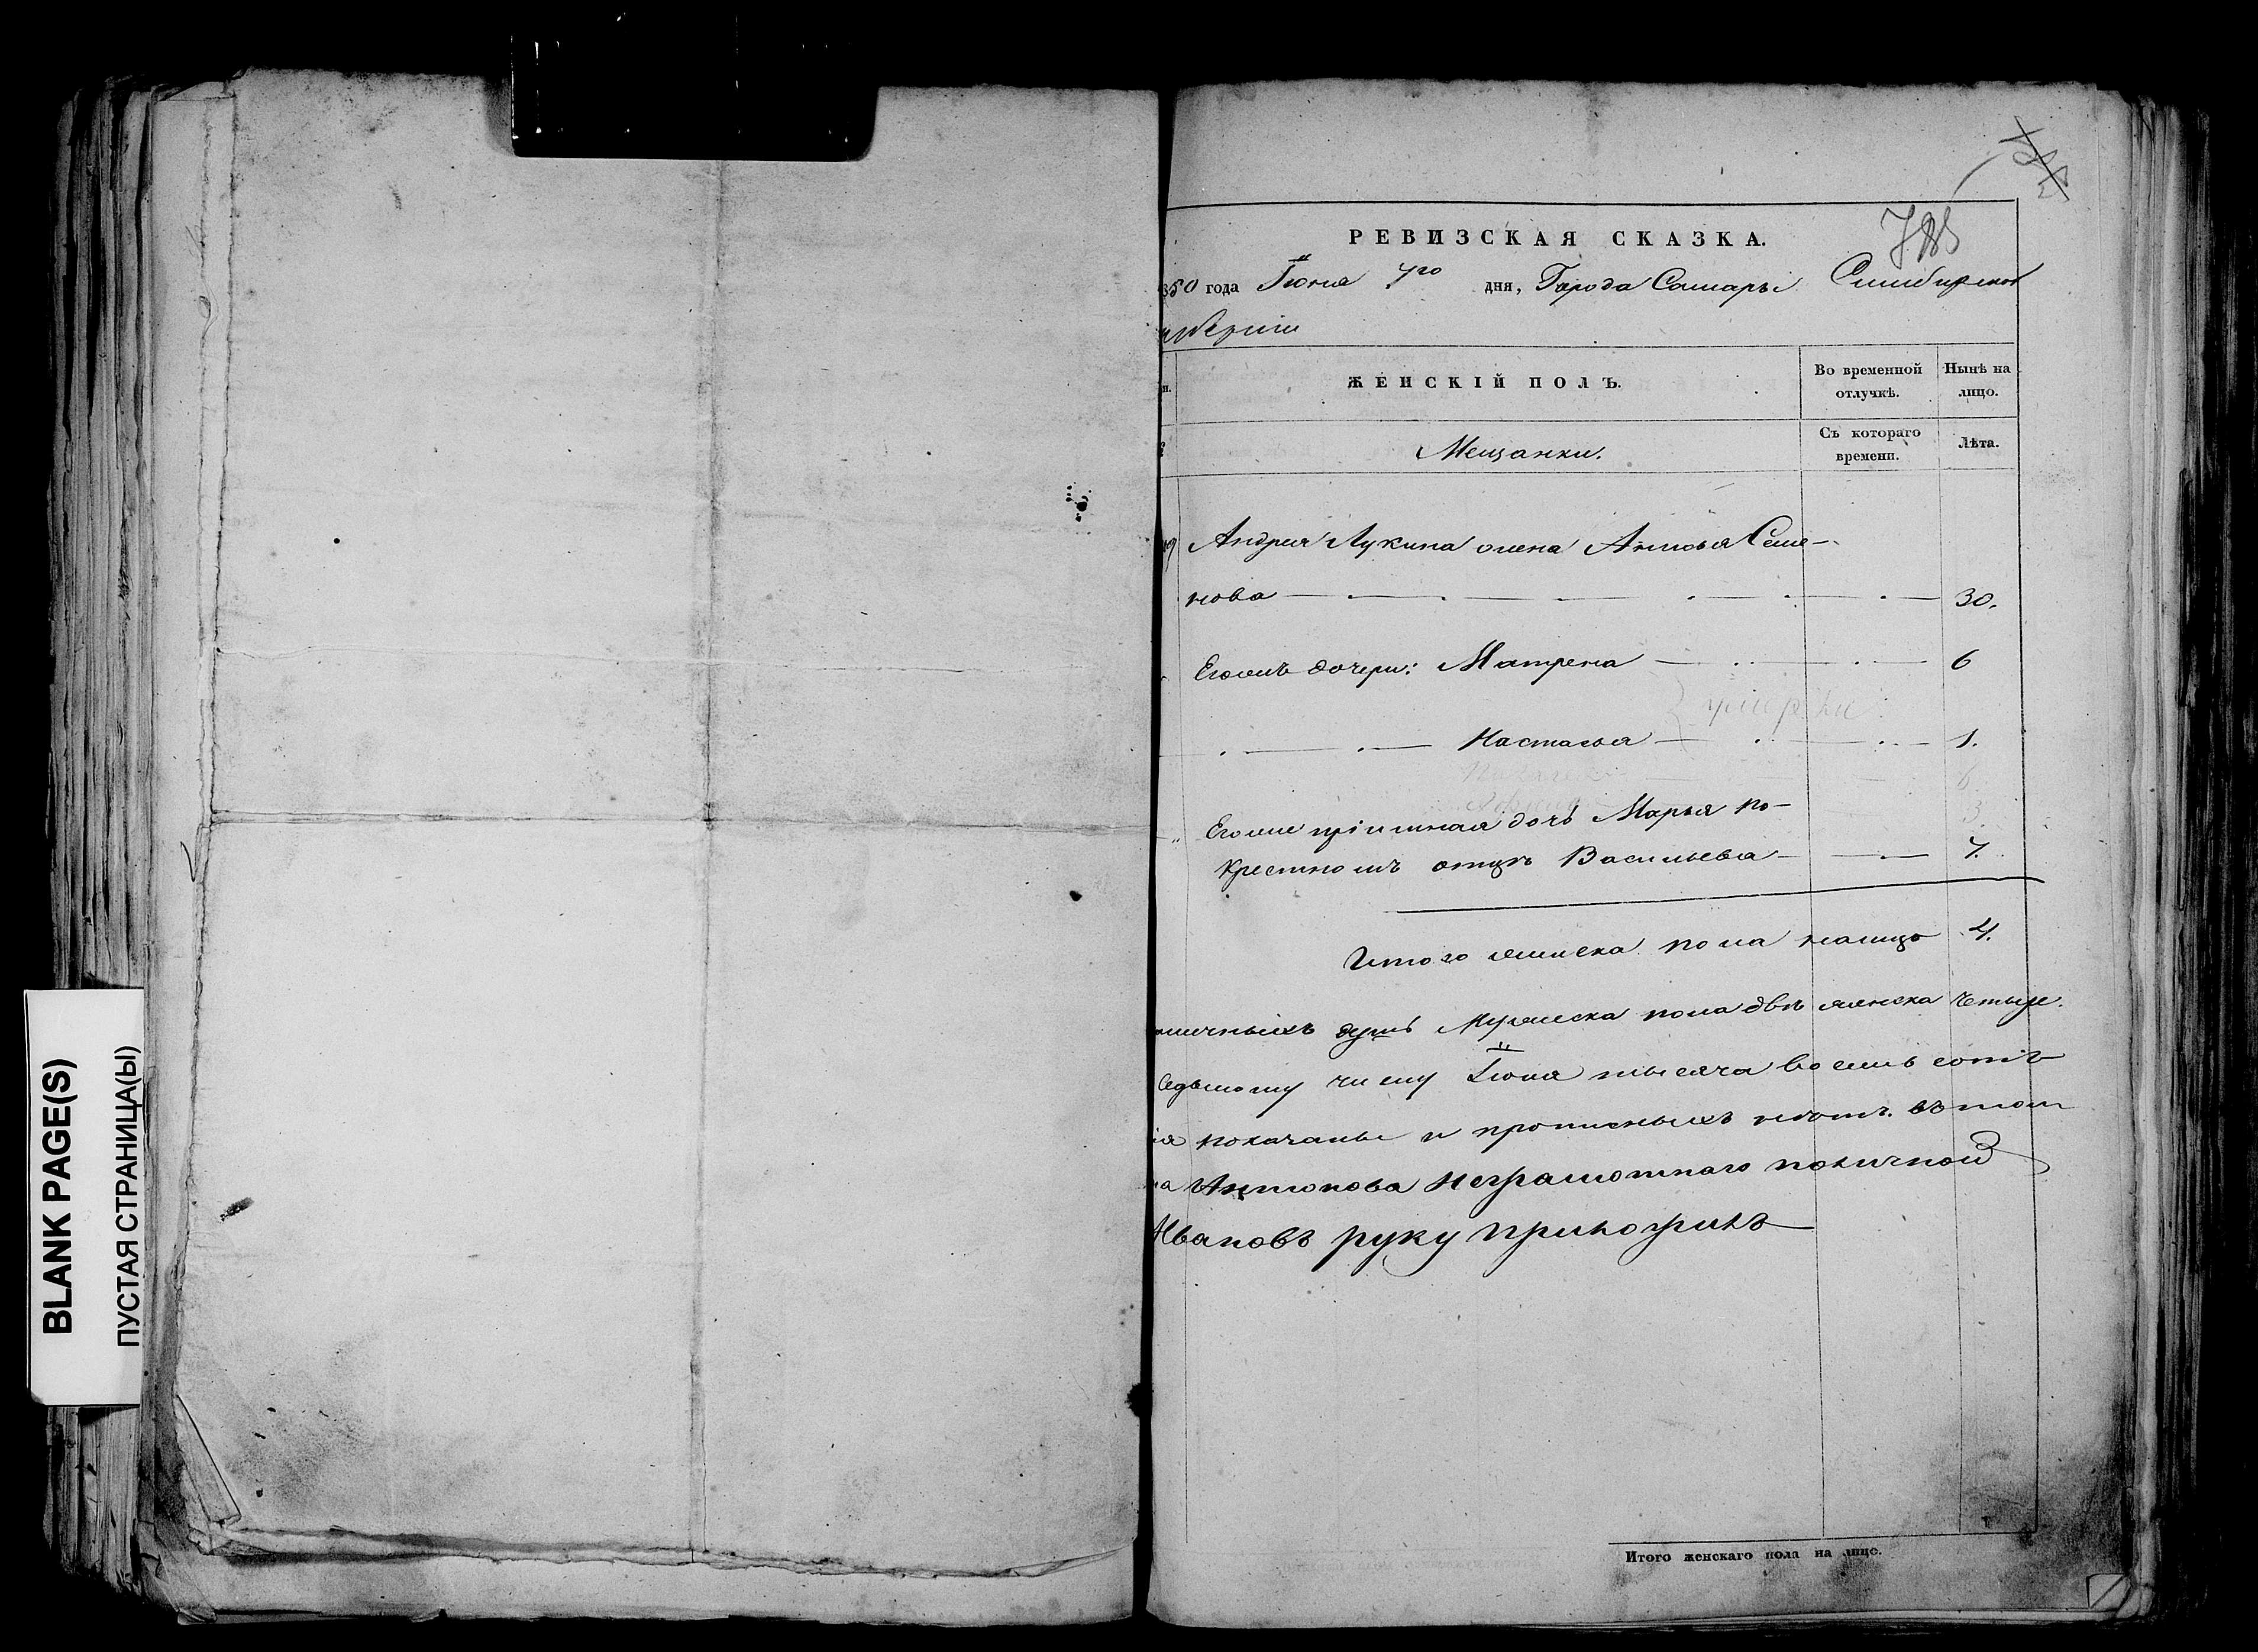 BLANK PAGE(S)
ПУСТАЯ СТРАНИЦА(Ы)
РЕВИЗСКАЯ СКАЗКА.
850 года Іюня 7го дня, Города Самары Симбирской
губерніи
ЖЕНСКІЙ ПОЛЪ.
Во временной отлучкѣ.
Нынѣ на лицо.
Мещанки.
Съ котораго времени.
Лѣта.
Андрея Лукина жена Анисья Семе-
нова 30.
Егожъ дочери: Матрена 6
умерли
Настасья 1.
Егоже пріимная дочь Марья по
крестномъ отцѣ Васильева 7.
Итого женска пола налицо 4.
душъ Мужеска пола двѣ женска четыре.
седьмому числу Іюня тысяча восемь сотъ
показаны и прописныхъ нѣтъ. въ том
Антонова неграмотнаго поличной
Ивановъ руку приложилъ
Итого женскаго пола на лице.